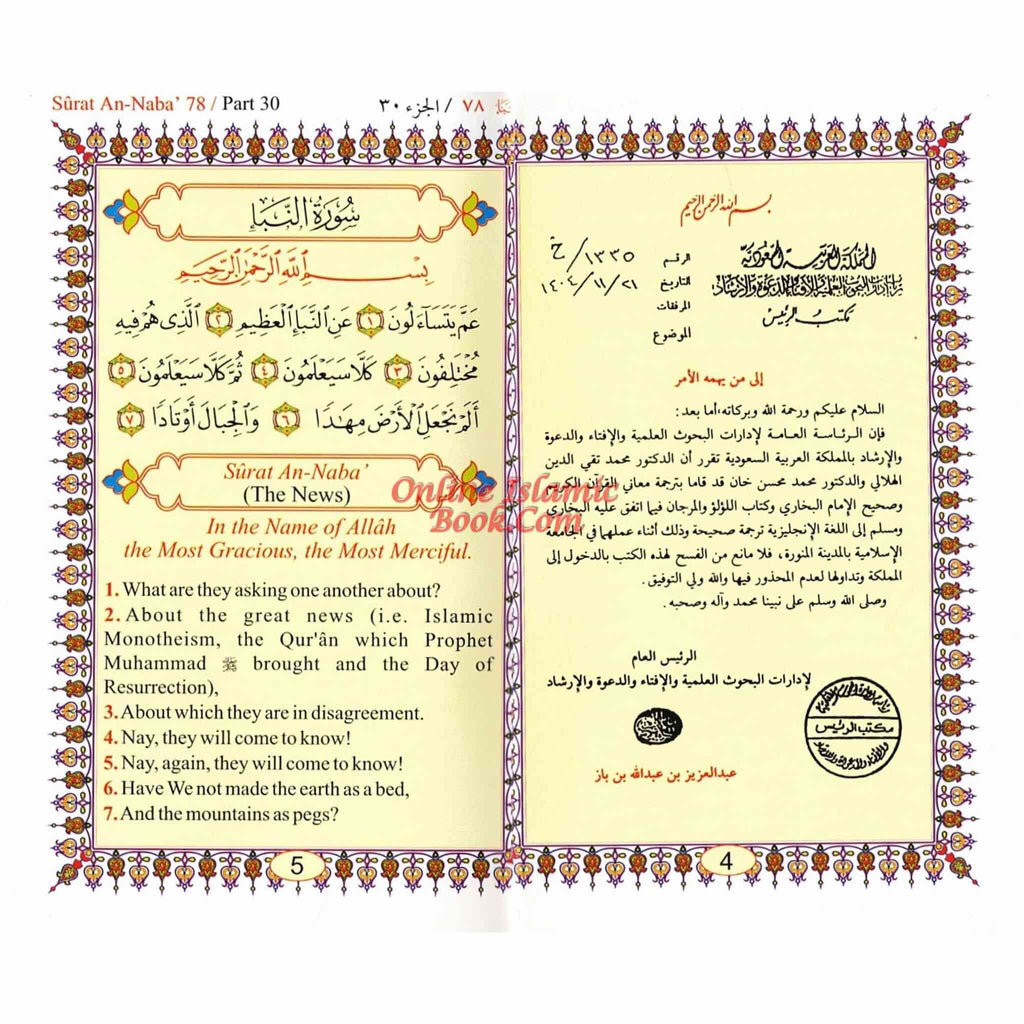 Sûrat An-Naba' 78 / Part 30
نبإ ٧٨ / الجزء ٣٠
سُورَةُ النَّبَإِ
بِسْمِ اللَّهِ الرَّحْمَٰنِ الرَّحِيمِ
عَمَّ يَتَسَاءَلُونَ ١ عَنِ النَّبَإِ الْعَظِيمِ ٢ الَّذِي هُمْ فِيهِ
مُخْتَلِفُونَ ٣ كَلَّا سَيَعْلَمُونَ ٤ ثُمَّ كَلَّا سَيَعْلَمُونَ ٥
أَلَمْ نَجْعَلِ الْأَرْضَ مِهَٰدًا ٦ وَالْجِبَالَ أَوْتَادًا ٧
Sûrat An-Naba'
(The News)
In the Name of Allâh
the Most Gracious, the Most Merciful.
1. What are they asking one another about?
2. About the great news (i.e. Islamic
Monotheism, the Qur'ân which Prophet
Muhammad ﷺ brought and the Day of
Resurrection),
3. About which they are in disagreement.
4. Nay, they will come to know!
5. Nay, again, they will come to know!
6. Have We not made the earth as a bed,
7. And the mountains as pegs?
5
بسم الله الرحمن الرحيم
المملكة العربية السعودية
رئاسة إدارات البحوث العلمية والإفتاء والدعوة والإرشاد
مكتب الرئيس
الرقم ١٣٣٥/خ
التاريخ ١٤٠٤/١١/٢١
المرفقات
الموضوع
إلى من يهمه الأمر
السلام عليكم ورحمة الله وبركاته،أما بعد:
فإن الرئاسة العامة لإدارات البحوث العلمية والإفتاء والدعوة
والإرشاد بالمملكة العربية السعودية تقرر أن الدكتور محمد تقي الدين
الهلالي والدكتور محمد محسن خان قد قاما بترجمة معاني القرآن الكريم
وصحيح الإمام البخاري وكتاب اللؤلؤ والمرجان فيما اتفق عليه البخاري
ومسلم إلى اللغة الإنجليزية ترجمة صحيحة وذلك أثناء عملهما في الجامعة
الإسلامية بالمدينة المنورة، فلا مانع من الفسح لهذه الكتب بالدخول إلى
المملكة وتداولها لعدم المحذور فيها والله ولي التوفيق.
وصلى الله وسلم على نبينا محمد وآله وصحبه.
الرئيس العام
لإدارات البحوث العلمية والإفتاء والدعوة والإرشاد
مكتب الرئيس
عبدالعزيز بن عبدالله بن باز
4
Online Islamic
Book.Com